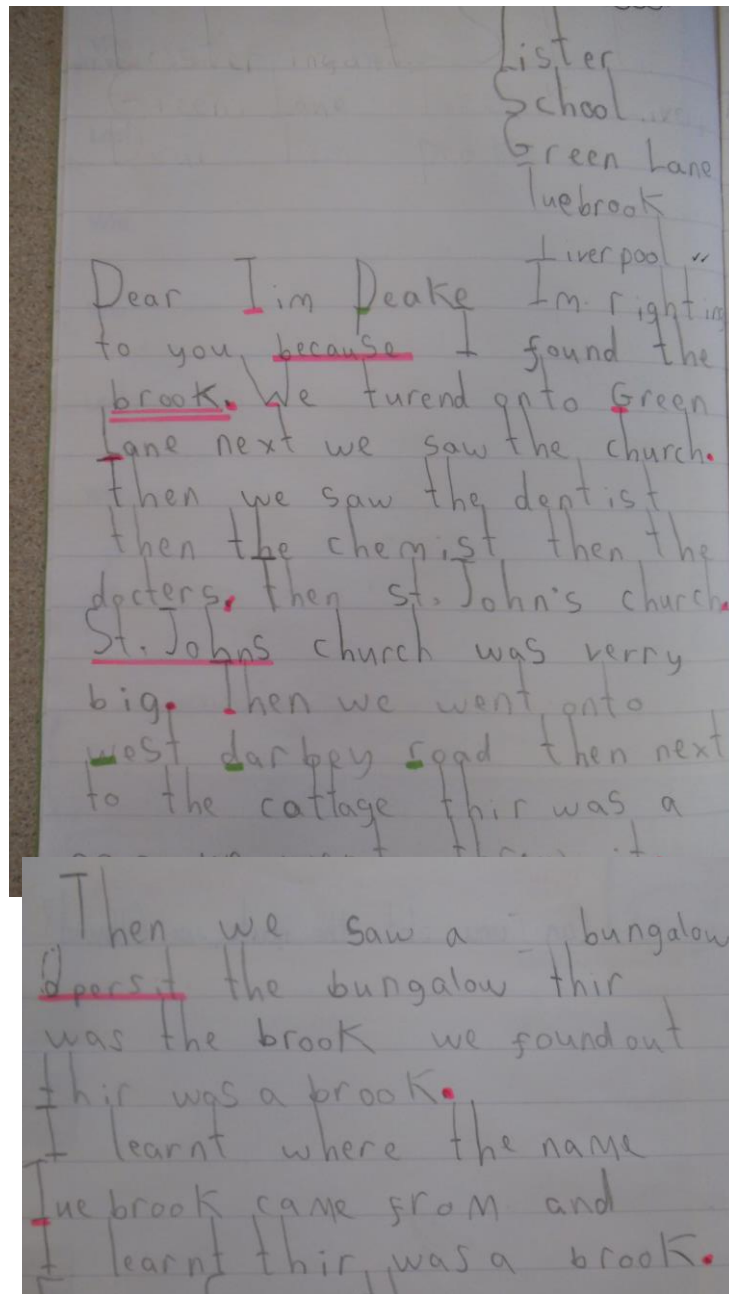 Lister
School
Green Lane
Tuebrook
Liverpool
Dear Tim Deake Im righting
to you because I found the
brook. We turend onto Green
Lane next we saw the church.
then we saw the dentist
then the chemist then the
docters. Then st. John's church.
St. Johns church was verry
big. Then we went onto
west darbey road then next
to the cattage thir was a
Then we saw a bungalow
Opersit the bungalow thir
was the brook we found out
thir was a brook.
I learnt where the name
Tuebrook came from and
I learnt thir was a brook.